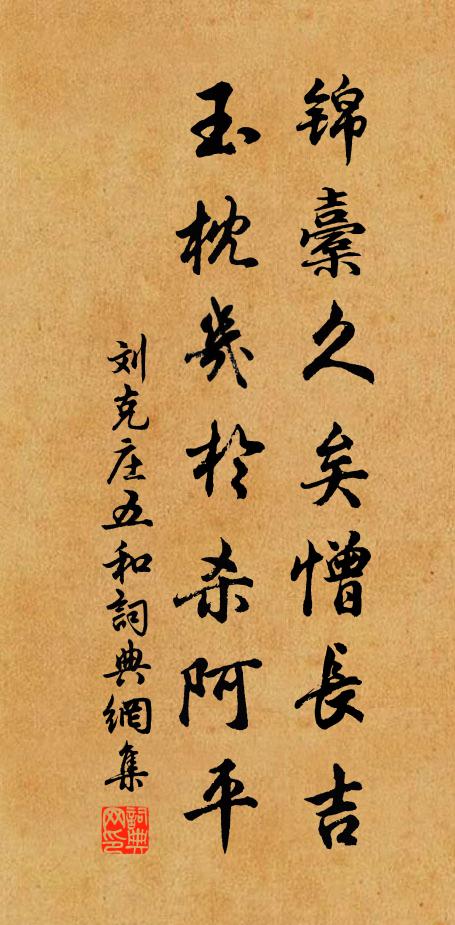 锦橐久矣憎長吉
玉枕幾於杀阿平
刘克庄五和詞典網集
詞典网印